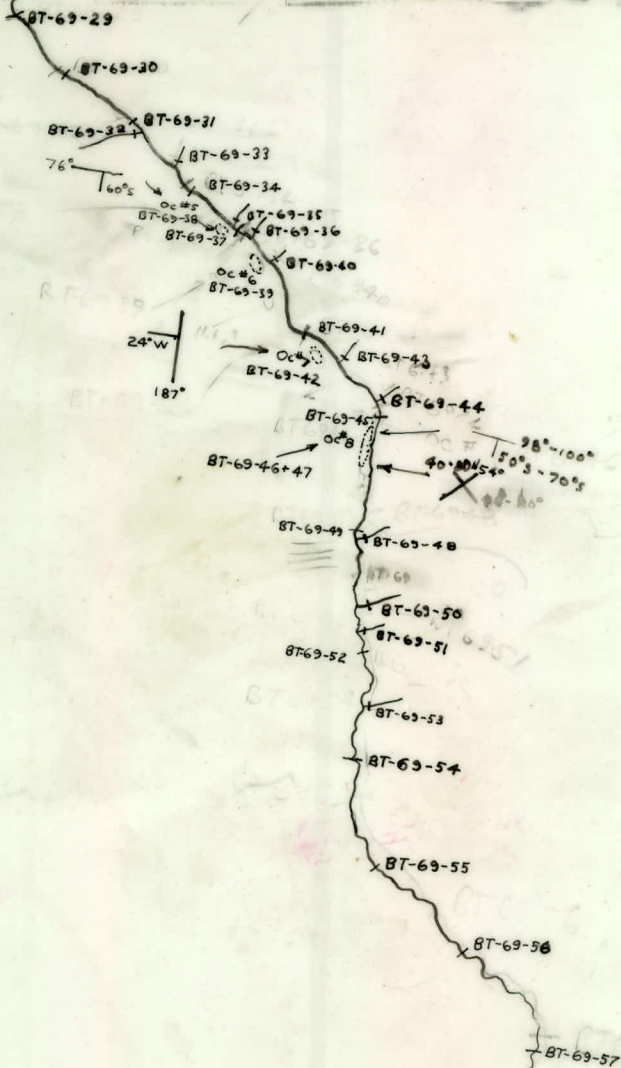 BT-69-29
BT-69-30
BT-69-31
BT-69-32
BT-69-33
76°
60°S
BT-69-34
OC#5
BT-69-38
BT-69-35
BT-69-36
BT-69-37
BT-69-40
OC#6
BT-69-39
BT-69-41
24°W
187°
OC#7
BT-69-42
BT-69-43
BT-69-44
BT-69-45
OC#8
98°-100°
50°S-70°S
BT-69-46+47
54°
BT-69-49
BT-69-48
BT-69-50
BT-69-51
BT-69-52
BT-69-53
BT-69-54
BT-69-55
BT-69-56
BT-69-57